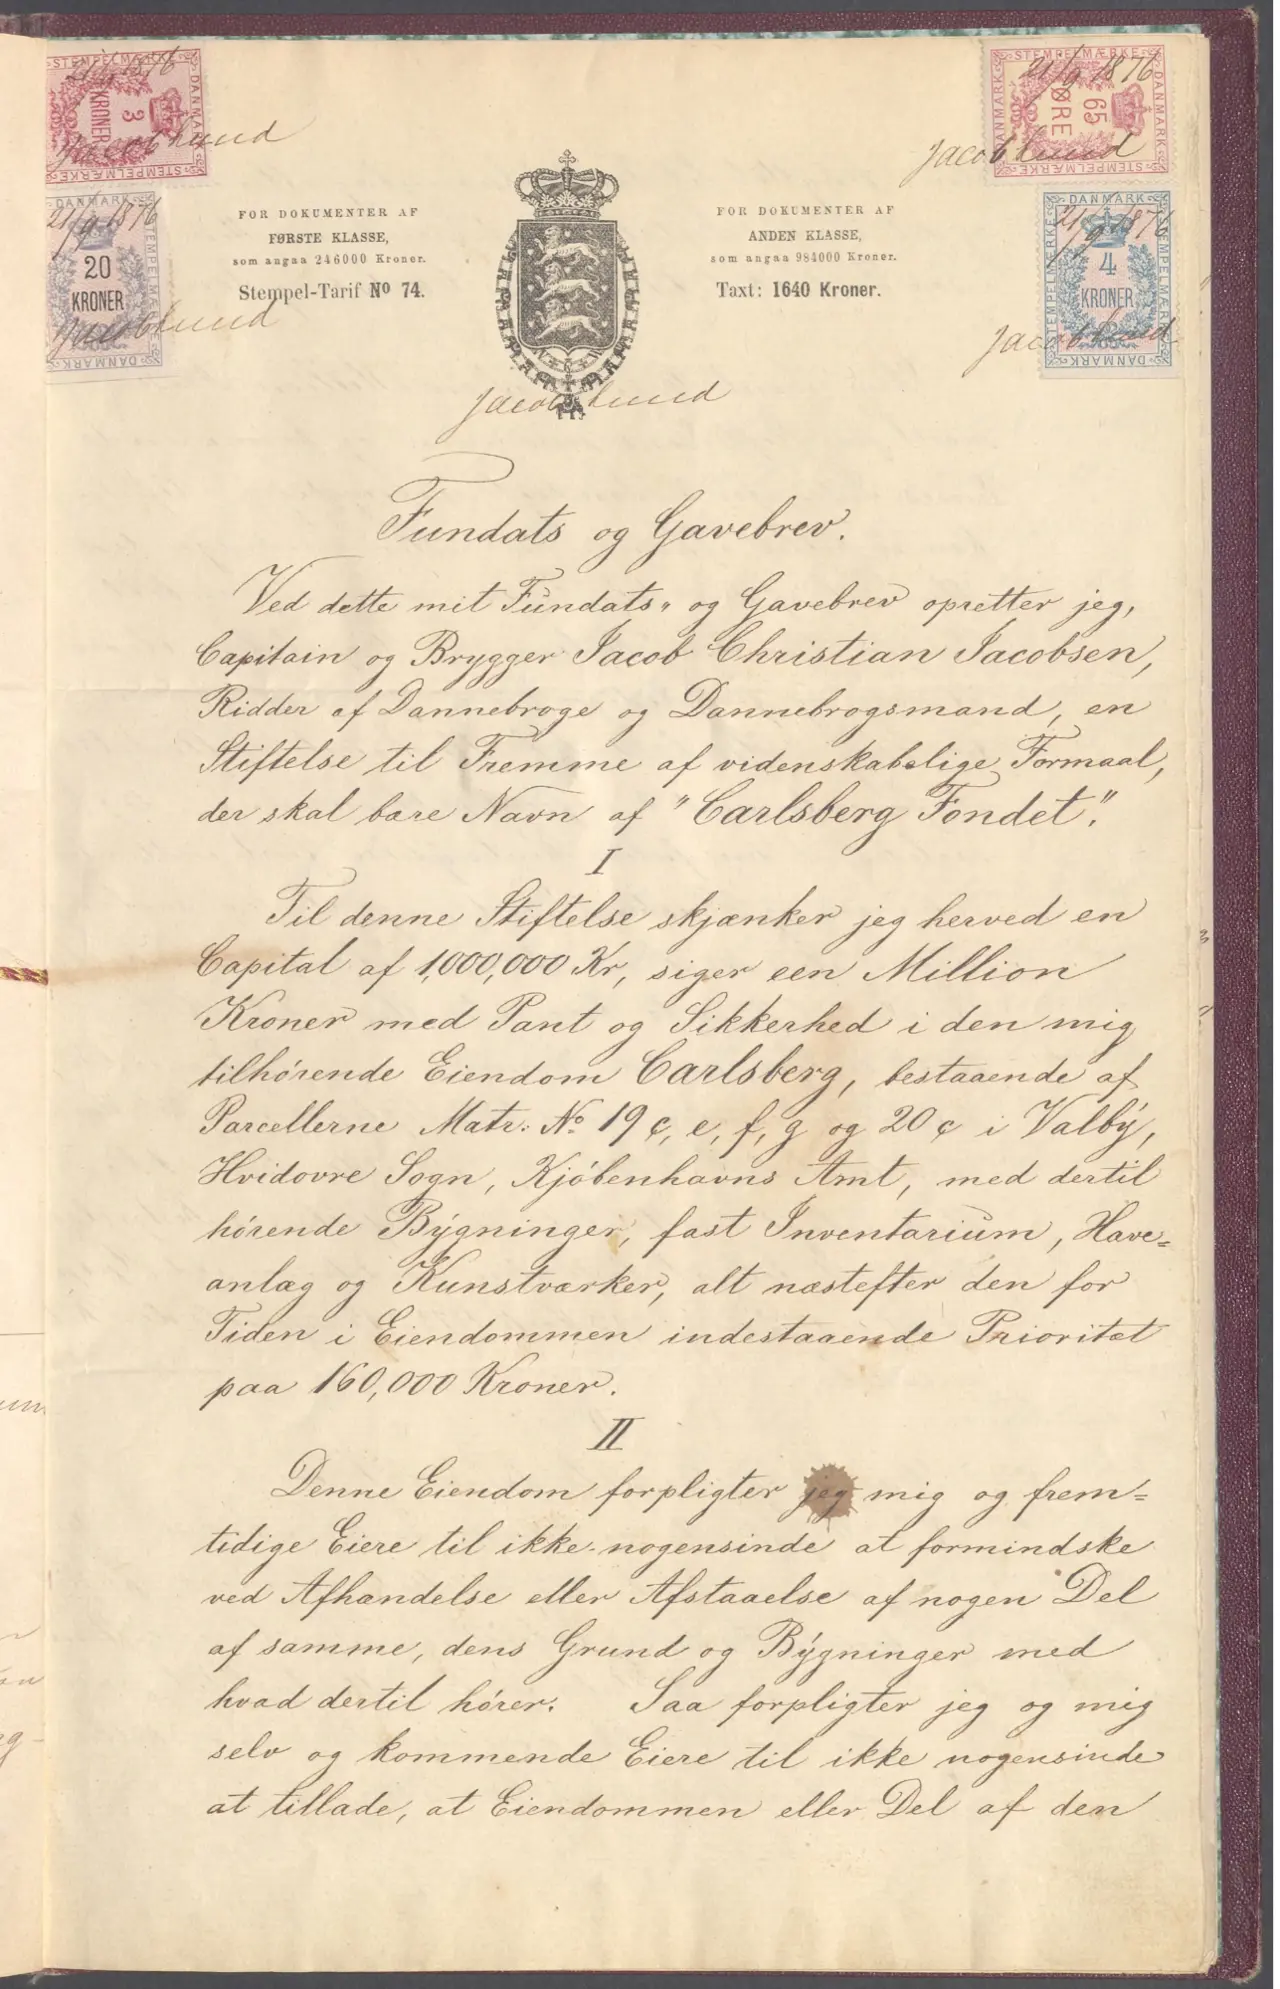 STEMPELMÆRKE
DANMARK
3
KRONER
STEMPELMÆRKE
21/9 1876
Jacob Lund
STEMPELMÆRKE
DANMARK
65
ØRE
DANMARK
21/9 1876
Jacob Lund
DANMARK
STEMPELMÆRKE
20
KRONER
DANMARK
21/9 1876
Jacob Lund
DANMARK
STEMPELMÆRKE
4
KRONER
STEMPELMÆRKE
DANMARK
21/9 1876
Jacob Lund
FOR DOKUMENTER AF
FØRSTE KLASSE,
som angaa 246000 Kroner.
Stempel-Tarif No 74.
FOR DOKUMENTER AF
ANDEN KLASSE,
som angaa 984000 Kroner.
Taxt: 1640 Kroner.
Jacob Lund
Fundats og Gavebrev.
Ved dette mit Fundats" og Gavebrev opretter jeg,
Capitain og Brygger Jacob Christian Jacobsen,
Ridder af Dannebroge og Dannebrogsmand, en
Stiftelse til Fremme af videnskabelige Formaal,
der skal bære Navn af "Carlsberg Fondet".
I
Til denne Stiftelse skjænker jeg herved en
Capital af 1,000,000 Kr, siger een Million
Kroner med Pant og Sikkerhed i den mig
tilhörende Eiendom Carlsberg, bestaaende af
Parcellerne Matr: No 19 c, e, f, g og 20 c i Valby,
Hvidovre Sogn, Kjöbenhavns Amt, med dertil
hörende Bygninger, fast Inventarium, Have=
anlæg og Kunstværker, alt næstefter den for
Tiden i Eiendommen indestaaende Prioritet
paa 160,000 Kroner.
II
Denne Eiendom forpligter jeg mig og frem=
tidige Eiere til ikke nogensinde at formindske
ved Afhændelse eller Afstaaelse af nogen Del
af samme, dens Grund og Bygninger med
hvad dertil hörer. Saa forpligter jeg og mig
selv og kommende Eiere til ikke nogensinde
at tillade, at Eiendommen eller Del af den